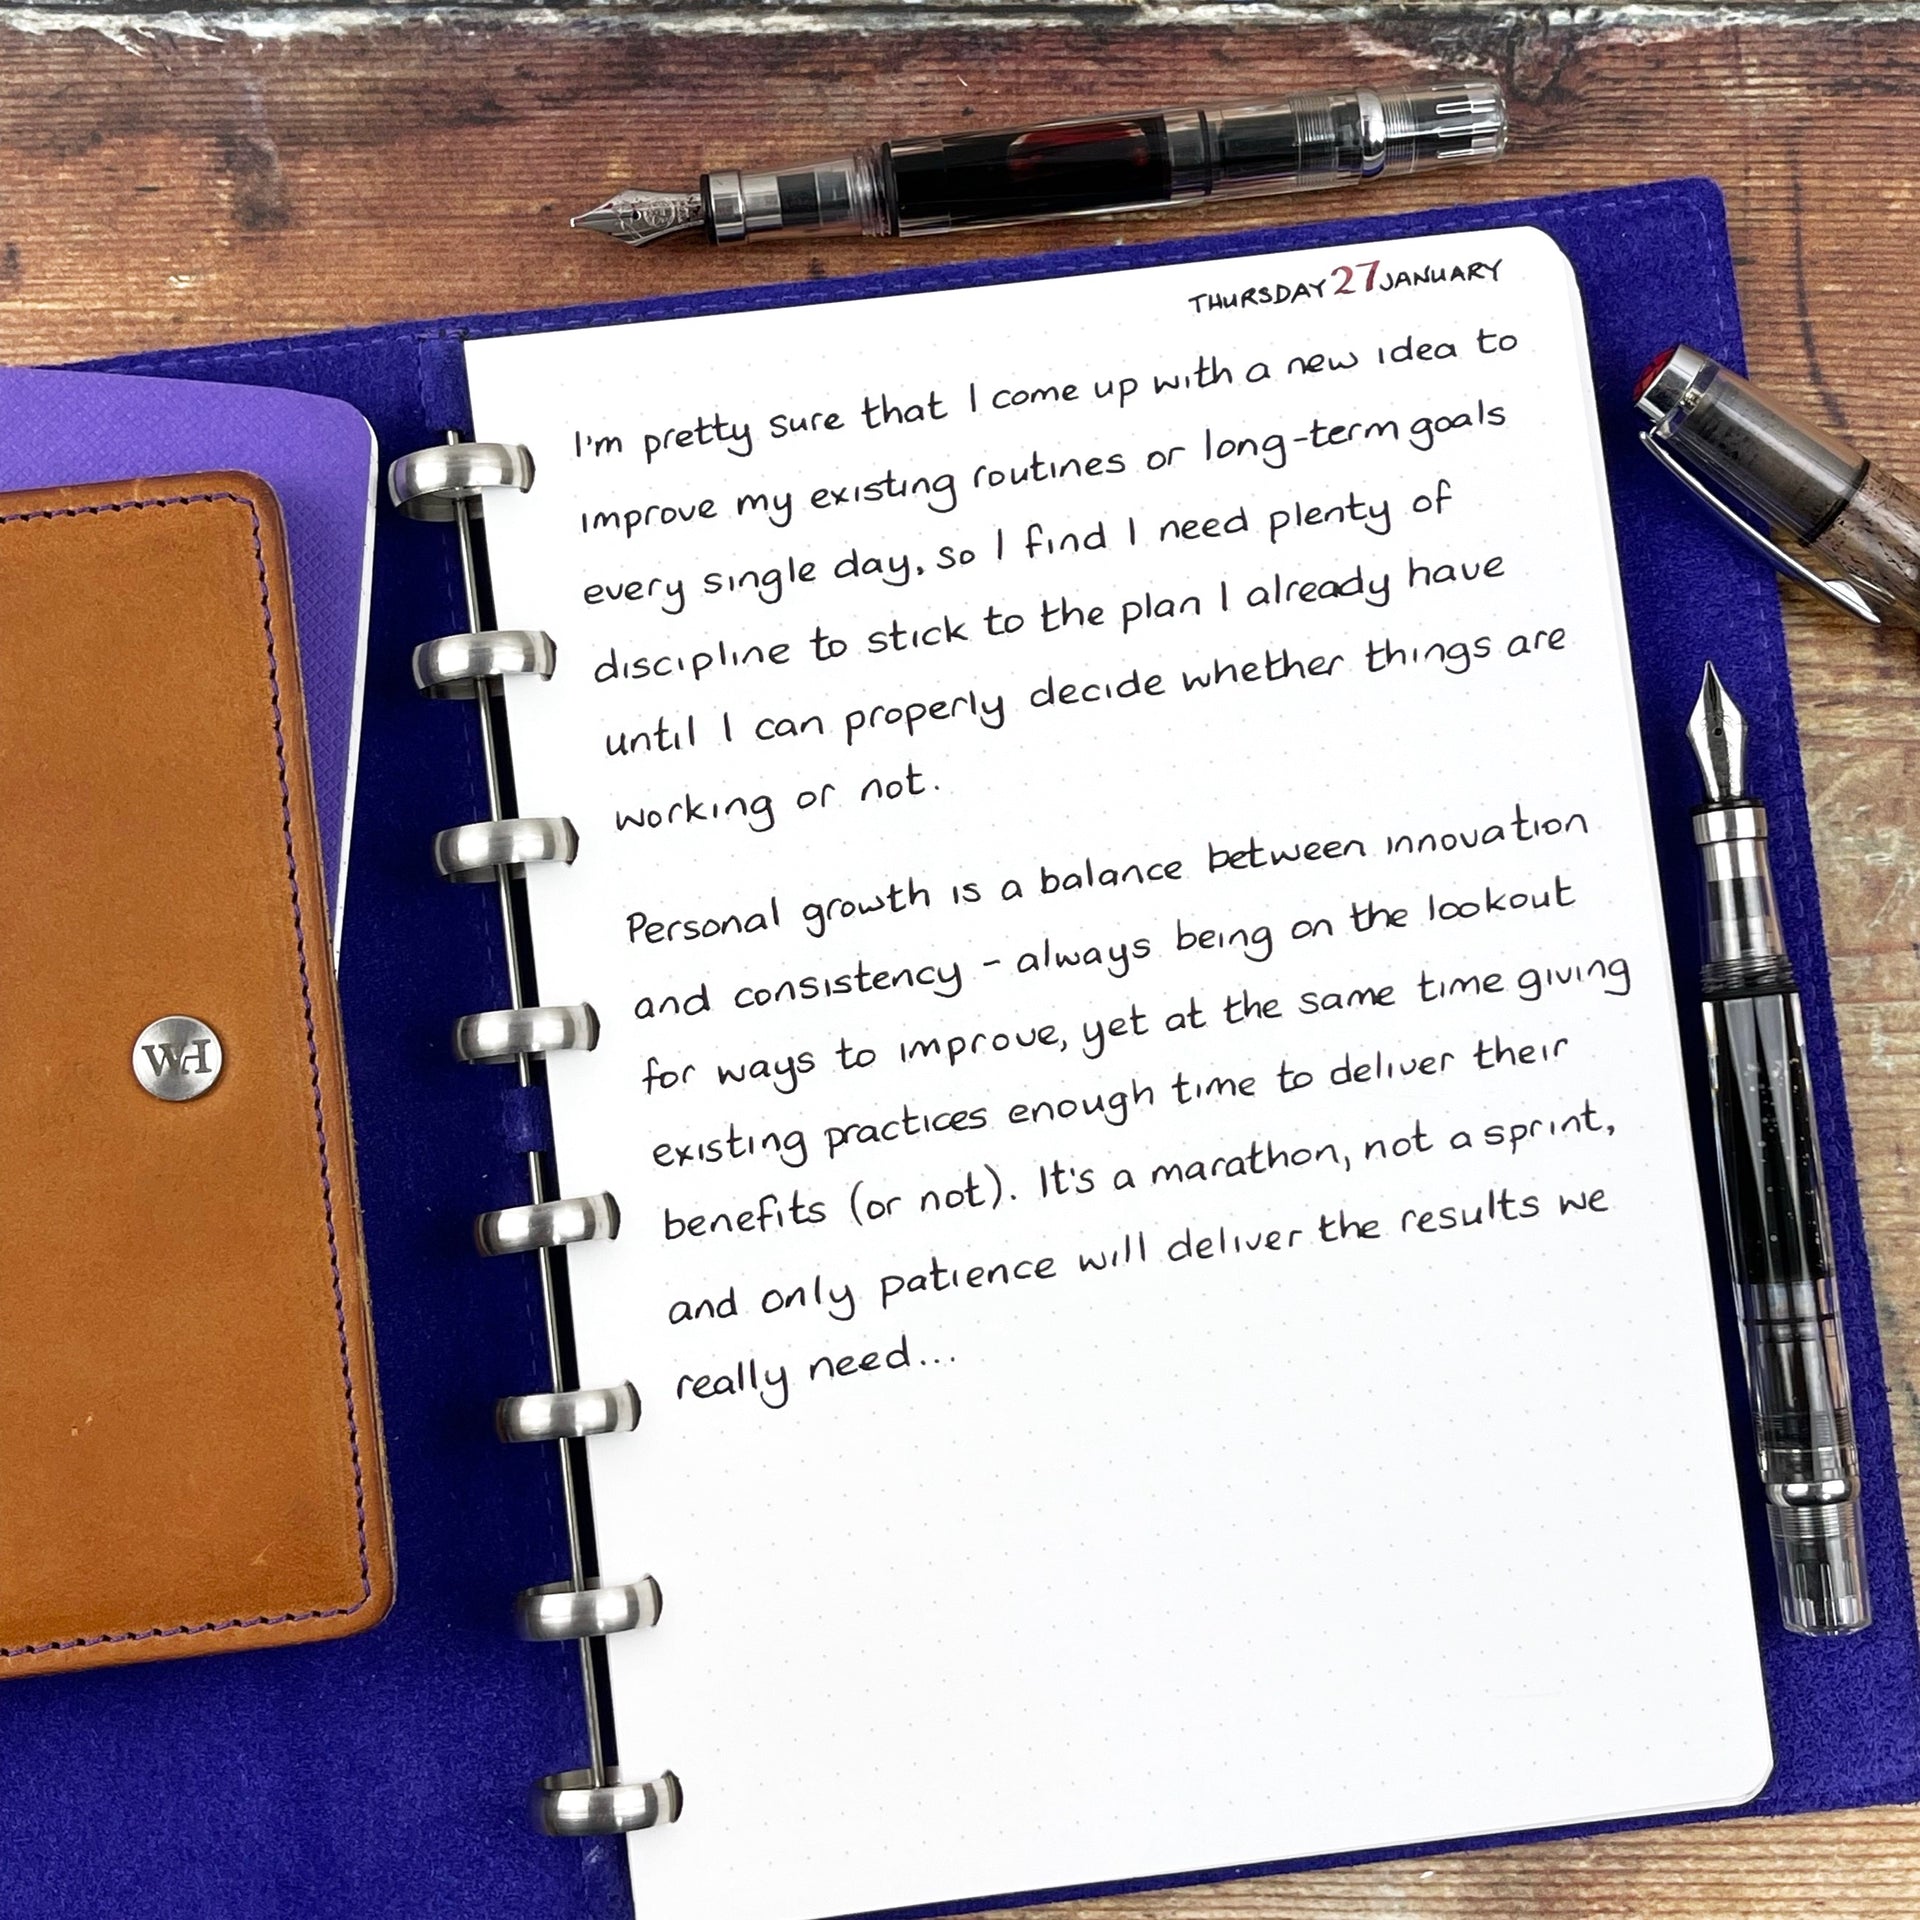 THURSDAY 27 JANUARY
I'm pretty sure that I come up with a new idea to
improve my existing routines or long-term goals
every single day, so I find I need plenty of
discipline to stick to the plan I already have
until I can properly decide whether things are
working or not.
Personal growth is a balance between innovation
and consistency - always being on the lookout
for ways to improve, yet at the same time giving
existing practices enough time to deliver their
benefits (or not). It's a marathon, not a sprint,
and only patience will deliver the results we
really need...
WH